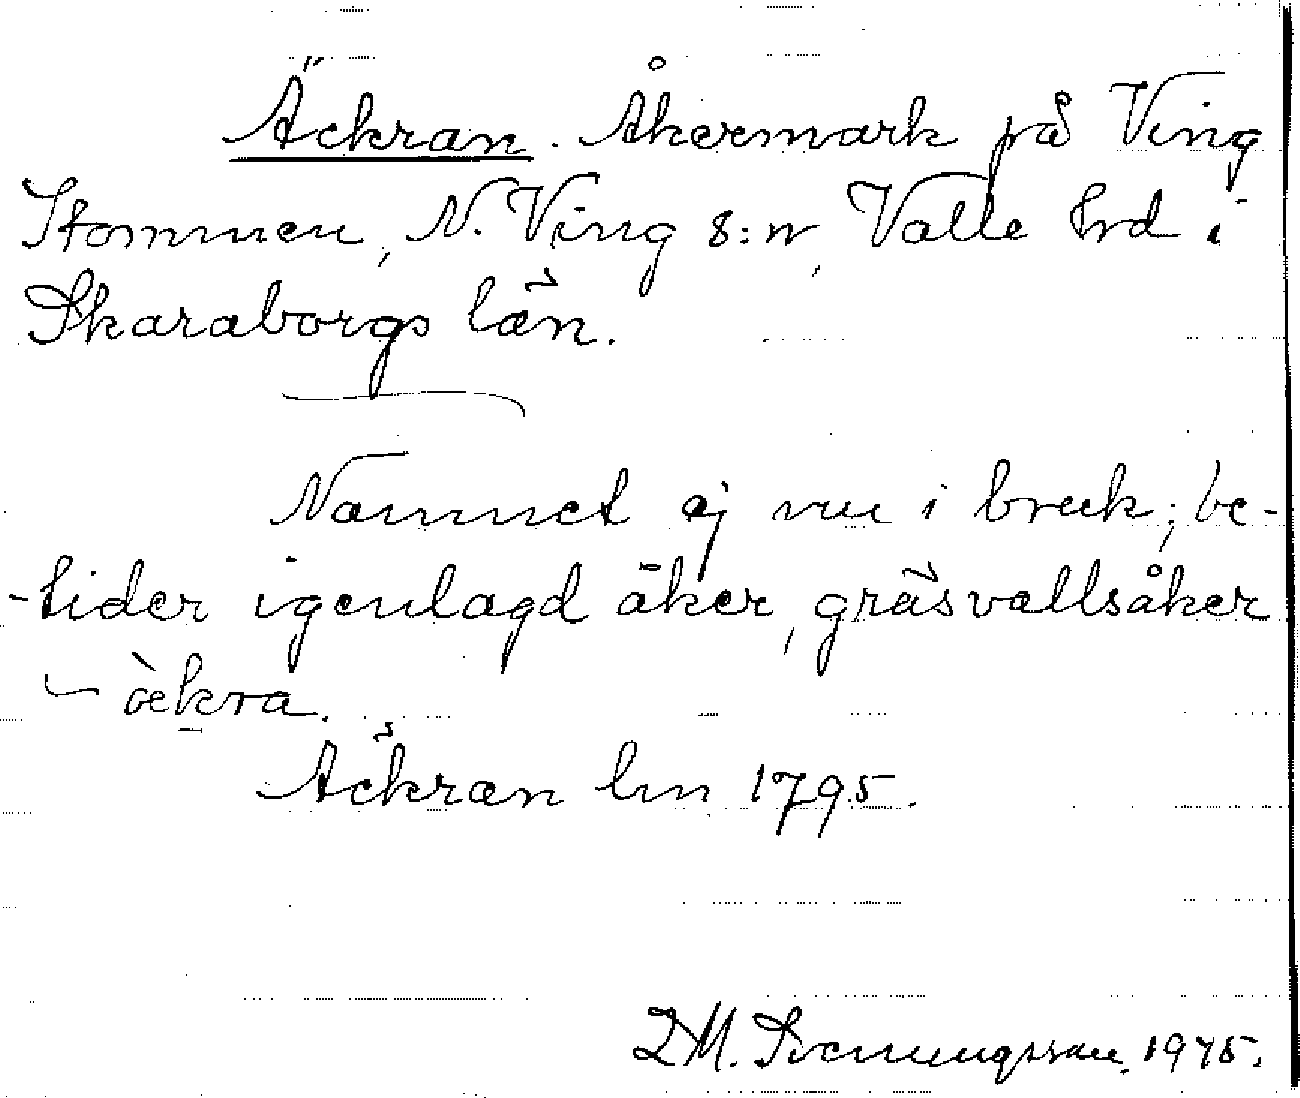 Äckran. Åkermark på Ving
Stommen, N. Ving s:n, Valle hrd i
Skaraborgs län.
Namnet ej nu i bruk; be-
-tider igenlagd åker, gräsvallsåker
– ὰkra.
Äckran lm 1795.
L M. Svenungsson. 1975.